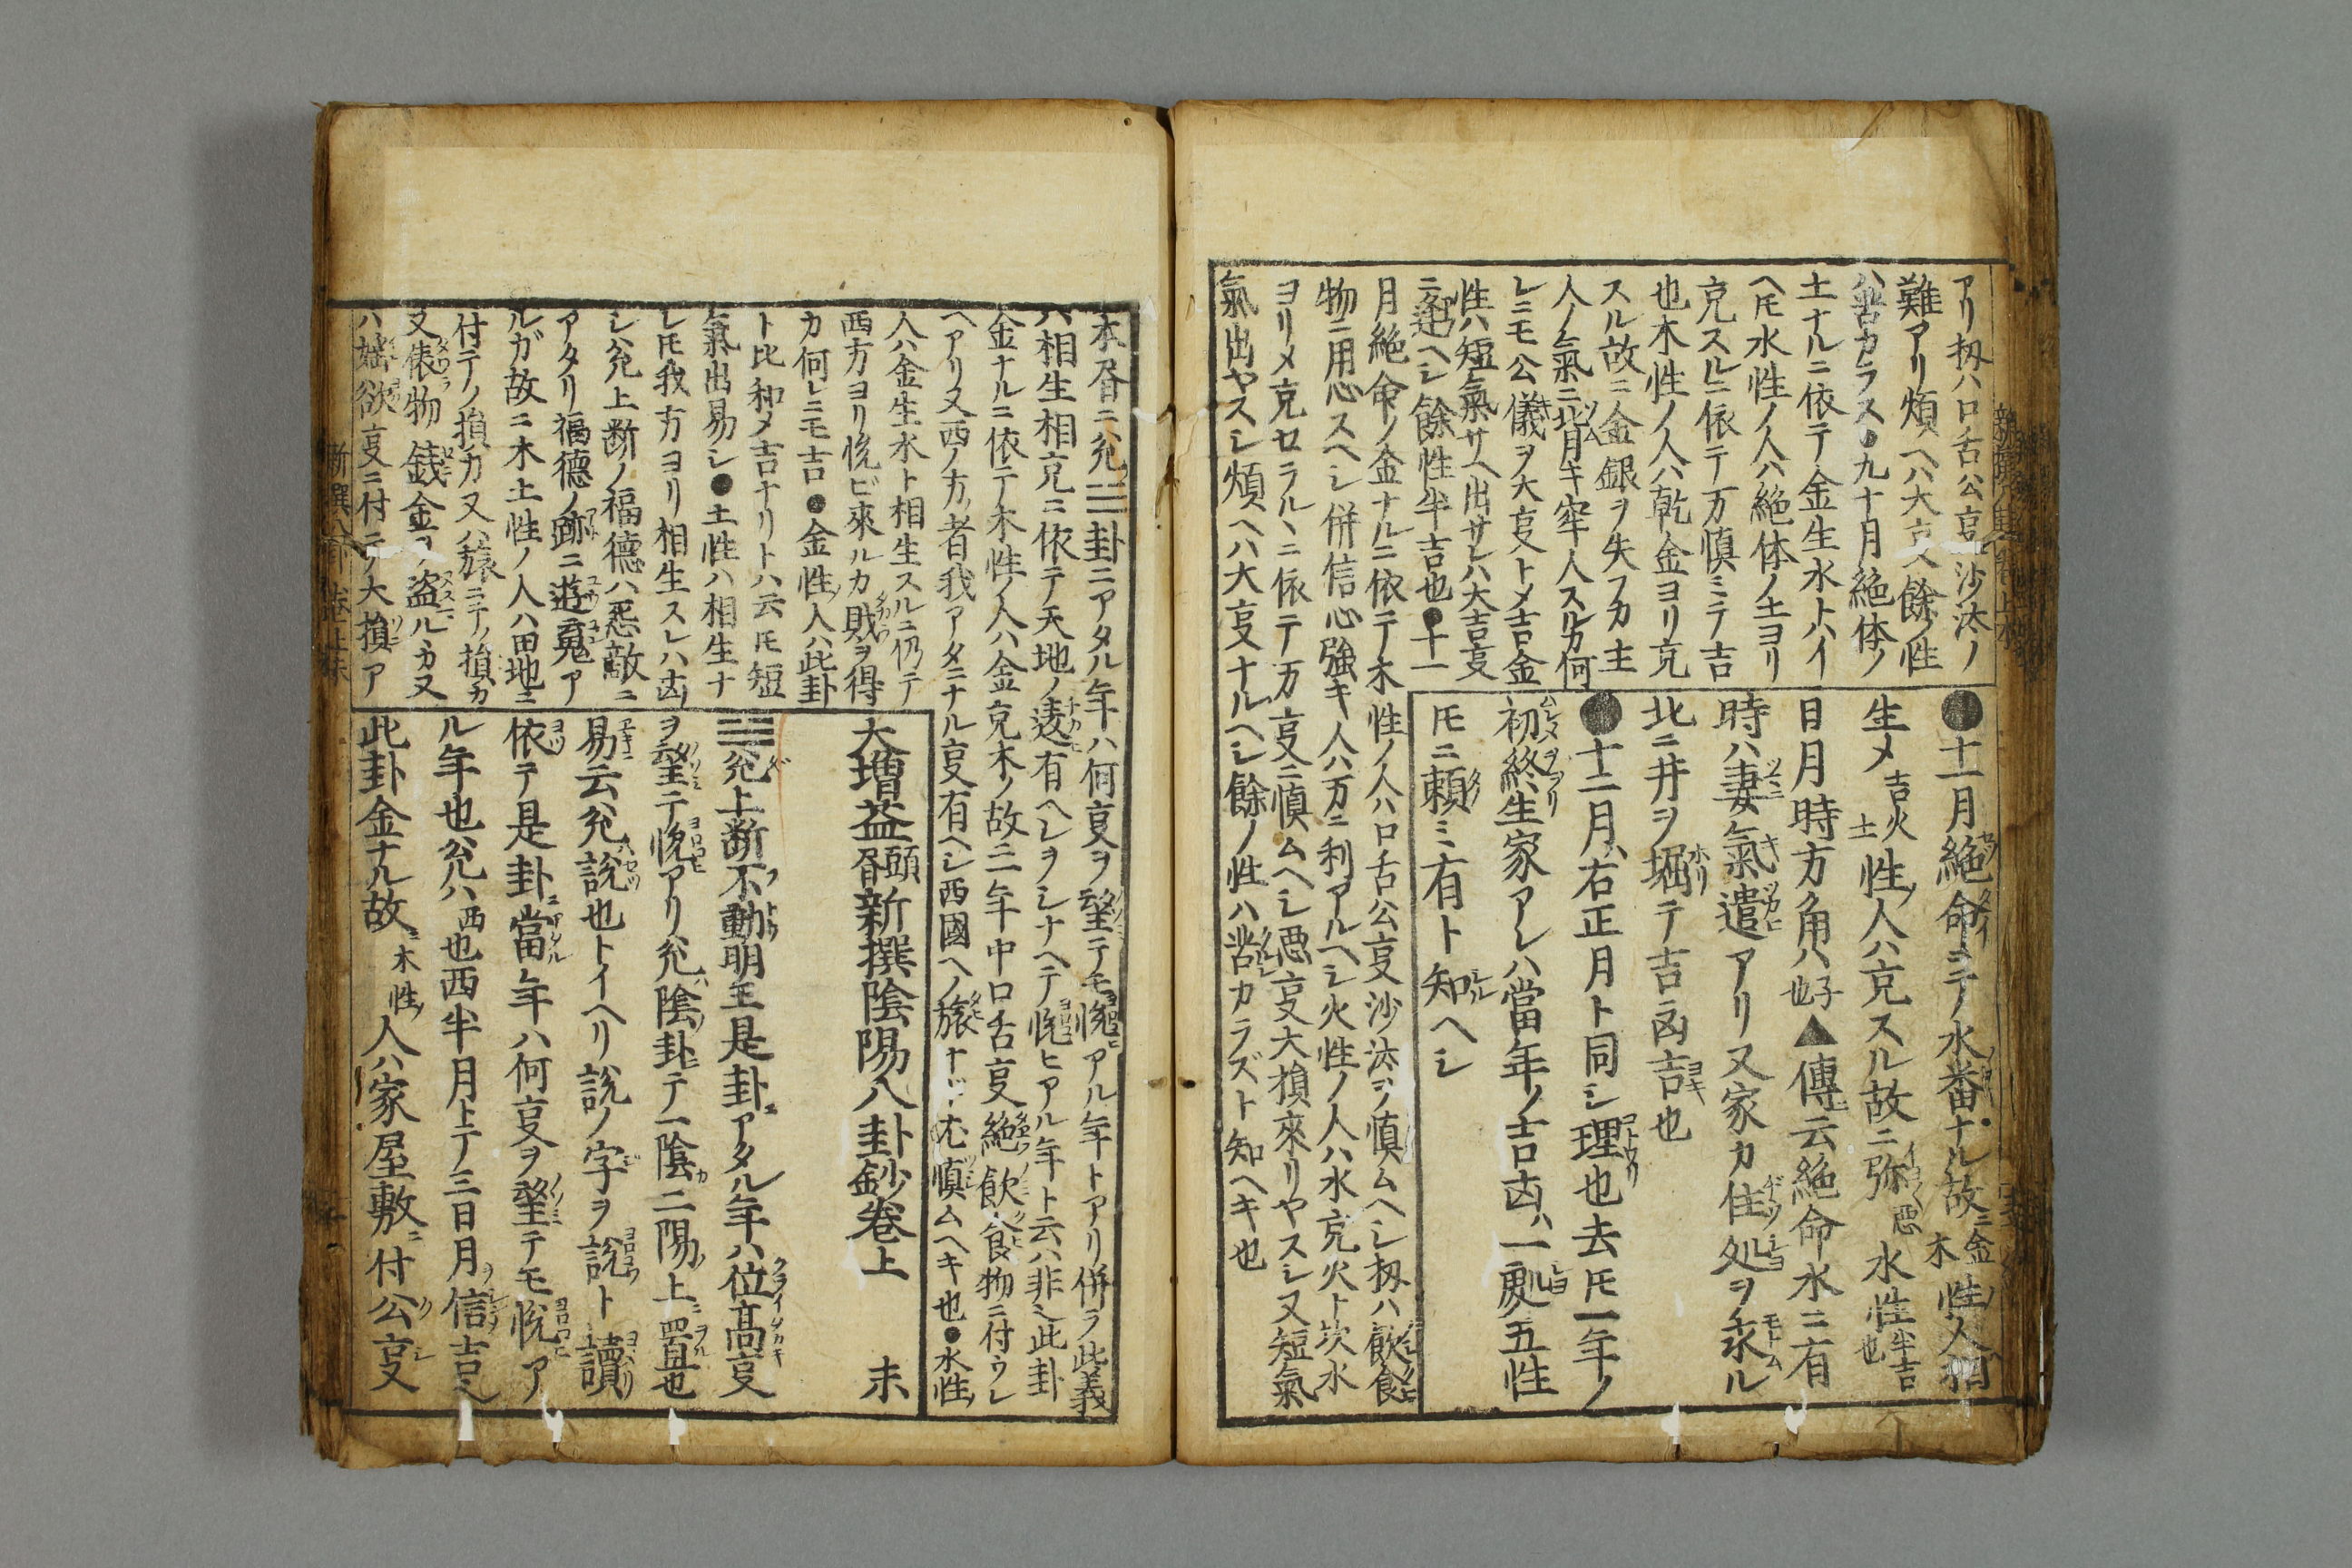 アリ扨ハ口舌公亊沙汰ノ
難アリ煩ヘハ大亊又餘ノ性
ハ苦カラス●九十月絶体ノ
土ナルニ依テ金生水トハイ
ヘ𪜈水性ノ人ハ絶体ノ土ヨリ
克スルニ依テ万慎ミテ吉
也木性ノ人ハ乾金ヨリ克
スル故ニ金銀ヲ失フカ主
人ノ氣ニ背キ牢人スルカ何
レニモ公儀ヲ大亊トメ吉金
性ハ短氣サヘ出サレハ大吉亊
ニ逢ヘシ餘性半吉也●十一
月絶命ノ金ナルニ依テ木性ノ人ハ口舌公亊沙汰ヲ慎ムヘシ扨ハ飲食
物ニ用心スヘシ併信心強キ人ハ万ニ利アルヘシ火性ノ人ハ水克火ト坎水
ヨリメ克セラルヽニ依テ万亊ニ慎ムヘシ悪亊大損來リヤスシ又短氣
氣出ヤスシ煩ヘハ大亊ナルヘシ餘ノ性ハ苦カラズト知ヘキ也
●十一月絶命ニテノ水番ナル故ニ金木性ノ人相
生メ吉火土性ノ人ハ克スル故ニ弥悪水性半吉也
日月時方角ハ子也▲傳云絶命水ニ有
時ハ妻ニ氣遣アリ又家カ住処ヲ求ル
北ニ井ヲ堀テ吉凶吉也
●十二月ハ右正月ト同シ理也去𪜈一年ノ
初終生家アレハ當年ノ吉凶ハ一処五性
𪜈ニ頼ミ有ト知ヘシ
本屑ニ兊☱卦ニアタル年ハ何亊ヲ望テモ悦アル年トアリ併ラ此義
ハ相生相克ニ依テ天地ノ違有ヘシヲシナヘテ悦ヒアル年ト云ハ非ミ此卦
金ナルニ依テ木性ノ人ハ金克木ノ故ニ年中口舌亊絶飲食物ニ付ウレ
ヘアリ又西ノ方者我アタニナル亊有ヘシ西國ヘノ旅ナド尤慎ムヘキ也●水性
人ハ金生水ト相生スルニ仍テ
西方ヨリ悦ビ來ルカ財ヲ得
カ何レニモ吉●金性人ハ此卦
ト比和メ吉ナリトハ云𪜈短
氣出易シ●土性ハ相生ナ
レ𪜈我方ヨリ相生スレハ凶
シ兊上断ノ福德ハ悪敵ニ
アタリ福德ノ跡ニ遊鬼ア
ルガ故ニ木土性ノ人ハ田地ニ
付テノ損カ又ハ旅ニテノ損カ
又俵物錢金ヲ盗ルヽカ又
ハ婬欲亊ニ付テノ大損ア
大増益頭屑新撰陰陽八卦鈔巻上　末
☱兊上断不動明王是卦ニアタル年ハ位髙亊
ヲ望テ悦アリ兊ハ陰卦ニテ一陰二陽ノ上ニ置也
易云兊說也トイヘリ說ノ字ヲ說ト讀
依テ是卦ニ當ル年ハ何亊ヲ望テモ悦ア
ル年也兊ハ西也西半月トテ三日月ヲ信吉シ
此卦金ナル故ニ木性人ハ家屋敷ニ付公亊